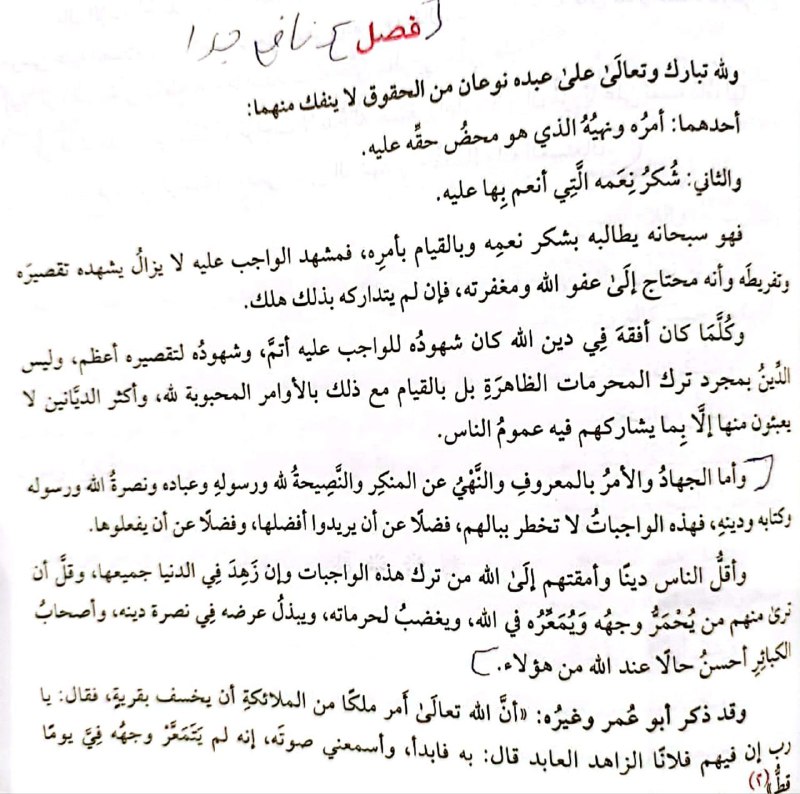 [فصل] نافع جدا
ولله تبارك وتعالَىٰ علىٰ عبده نوعان من الحقوق لا ينفك منهما:
أحدهما: أمرُه ونهيُهُ الذي هو محضُ حقِّه عليه.
والثاني: شُكرُ نِعَمه الَّتِي أنعم بِها عليه.
فهو سبحانه يطالبه بشكر نعمِه وبالقيام بأمرِه، فمشهد الواجب عليه لا يزالُ يشهده تقصيرَه
وتفريطَه وأنه محتاج إلَىٰ عفو الله ومغفرته، فإن لم يتداركه بذلك هلك.
وكُلَّمَا كان أفقهَ فِي دين الله كان شهودُه للواجب عليه أتمَّ، وشهودُه لتقصيره أعظم، وليس
الدِّينُ بمجرد ترك المحرمات الظاهرَةِ بل بالقيام مع ذلك بالأوامر المحبوبة لله، وأكثر الديَّانين لا
يعبئون منها إلَّا بِما يشاركهم فيه عمومُ الناس.
[وأما الجهادُ والأمرُ بالمعروفِ والنَّهْيُ عن المنكِر والنَّصِيحةُ لله ورسولهِ وعباده ونصرةُ الله ورسوله
وكتابه ودينهِ، فهذه الواجباتُ لا تخطر ببالهم، فضلًا عن أن يريدوا أفضلها، وفضلًا عن أن يفعلوها.
وأقلُّ الناس دينًا وأمقتهم إلَىٰ الله من ترك هذه الواجبات وإن زَهِدَ فِي الدنيا جميعها، وقلَّ أن
ترىٰ منهم من يُحْمَرُّ وجهُه وَيُمَعَّرُه في الله، ويغضبُ لحرماته، ويبذلُ عرضه فِي نصرة دينه، وأصحابُ
الكبائِرِ أحسنُ حالًا عند الله من هؤلاء.]
وقد ذكر أبو عُمر وغيرُه: «أنَّ الله تعالَىٰ أَمر ملكًا من الملائكةِ أن يخسف بقريةٍ، فقال: يا
رب إن فيهم فلانًا الزاهد العابد قال: به فابدأ، وأسمعني صوتَه، إنه لم يَتَمَعَّرْ وجهُه فِيَّ يومًا
قطُّ»(٢)